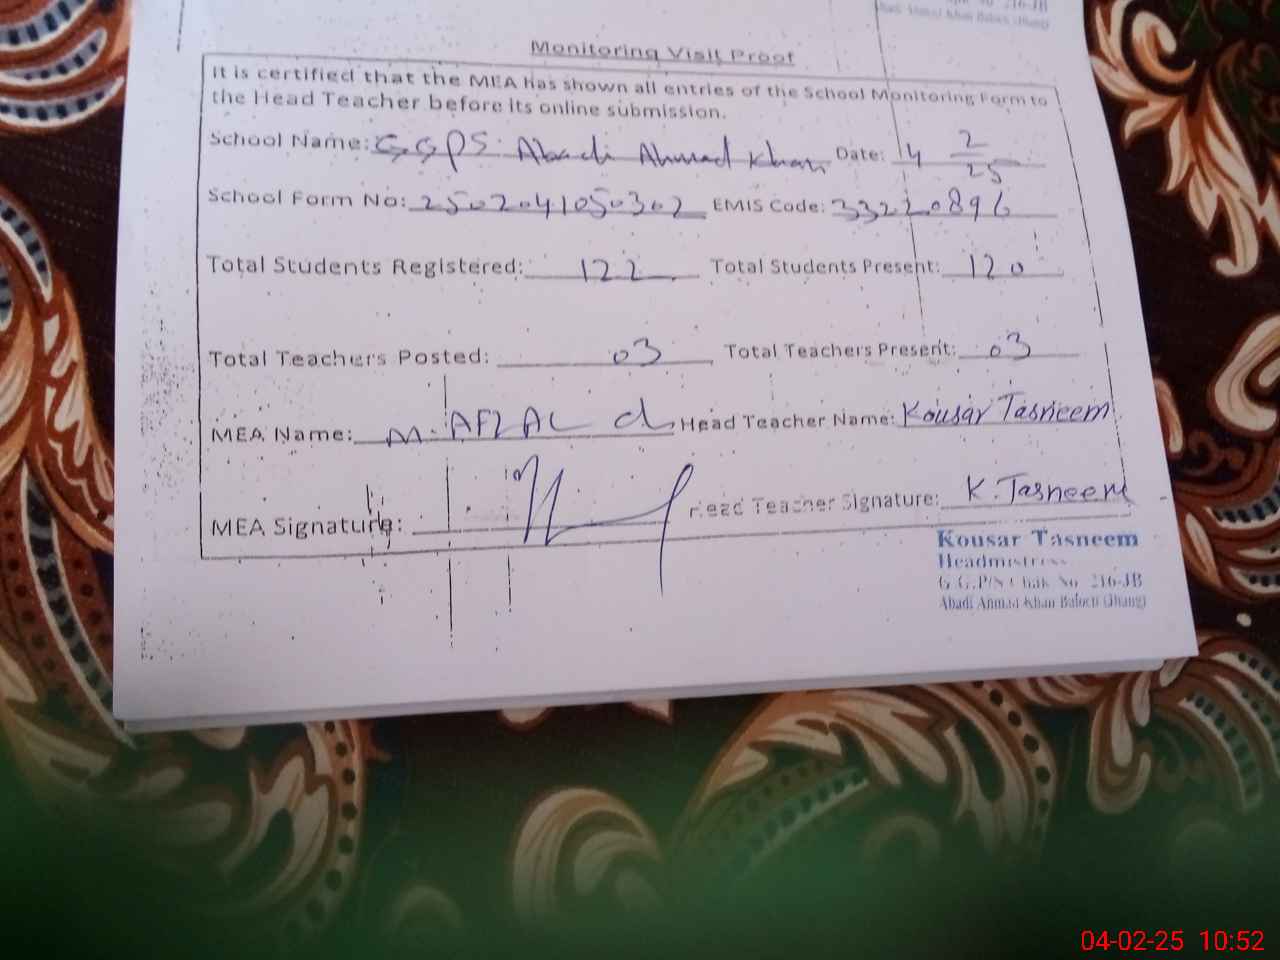 Abadi Ahmad Khan Baloch (Jhang)
Monitoring Visit Proof
It is certified that the MEA has shown all entries of the School Monitoring Form to
the Head Teacher before its online submission.
School Name: GGPS Abadi Ahmad Khan Date: 4 2/25
School Form No: 2502041050302 EMIS Code: 33220896
Total Students Registered: 122 Total Students Present: 120
Total Teachers Posted: 03 Total Teachers Present: 03
MEA Name: M. AFZAL Head Teacher Name: Kousar Tasneem
MEA Signature: Head Teacher Signature: K. Tasneem
Kousar Tasneem
Headmistress
G.G.P/S Chak No 216-JB
Abadi Ahmad Khan Baloch (Jhang)
04-02-25 10:52